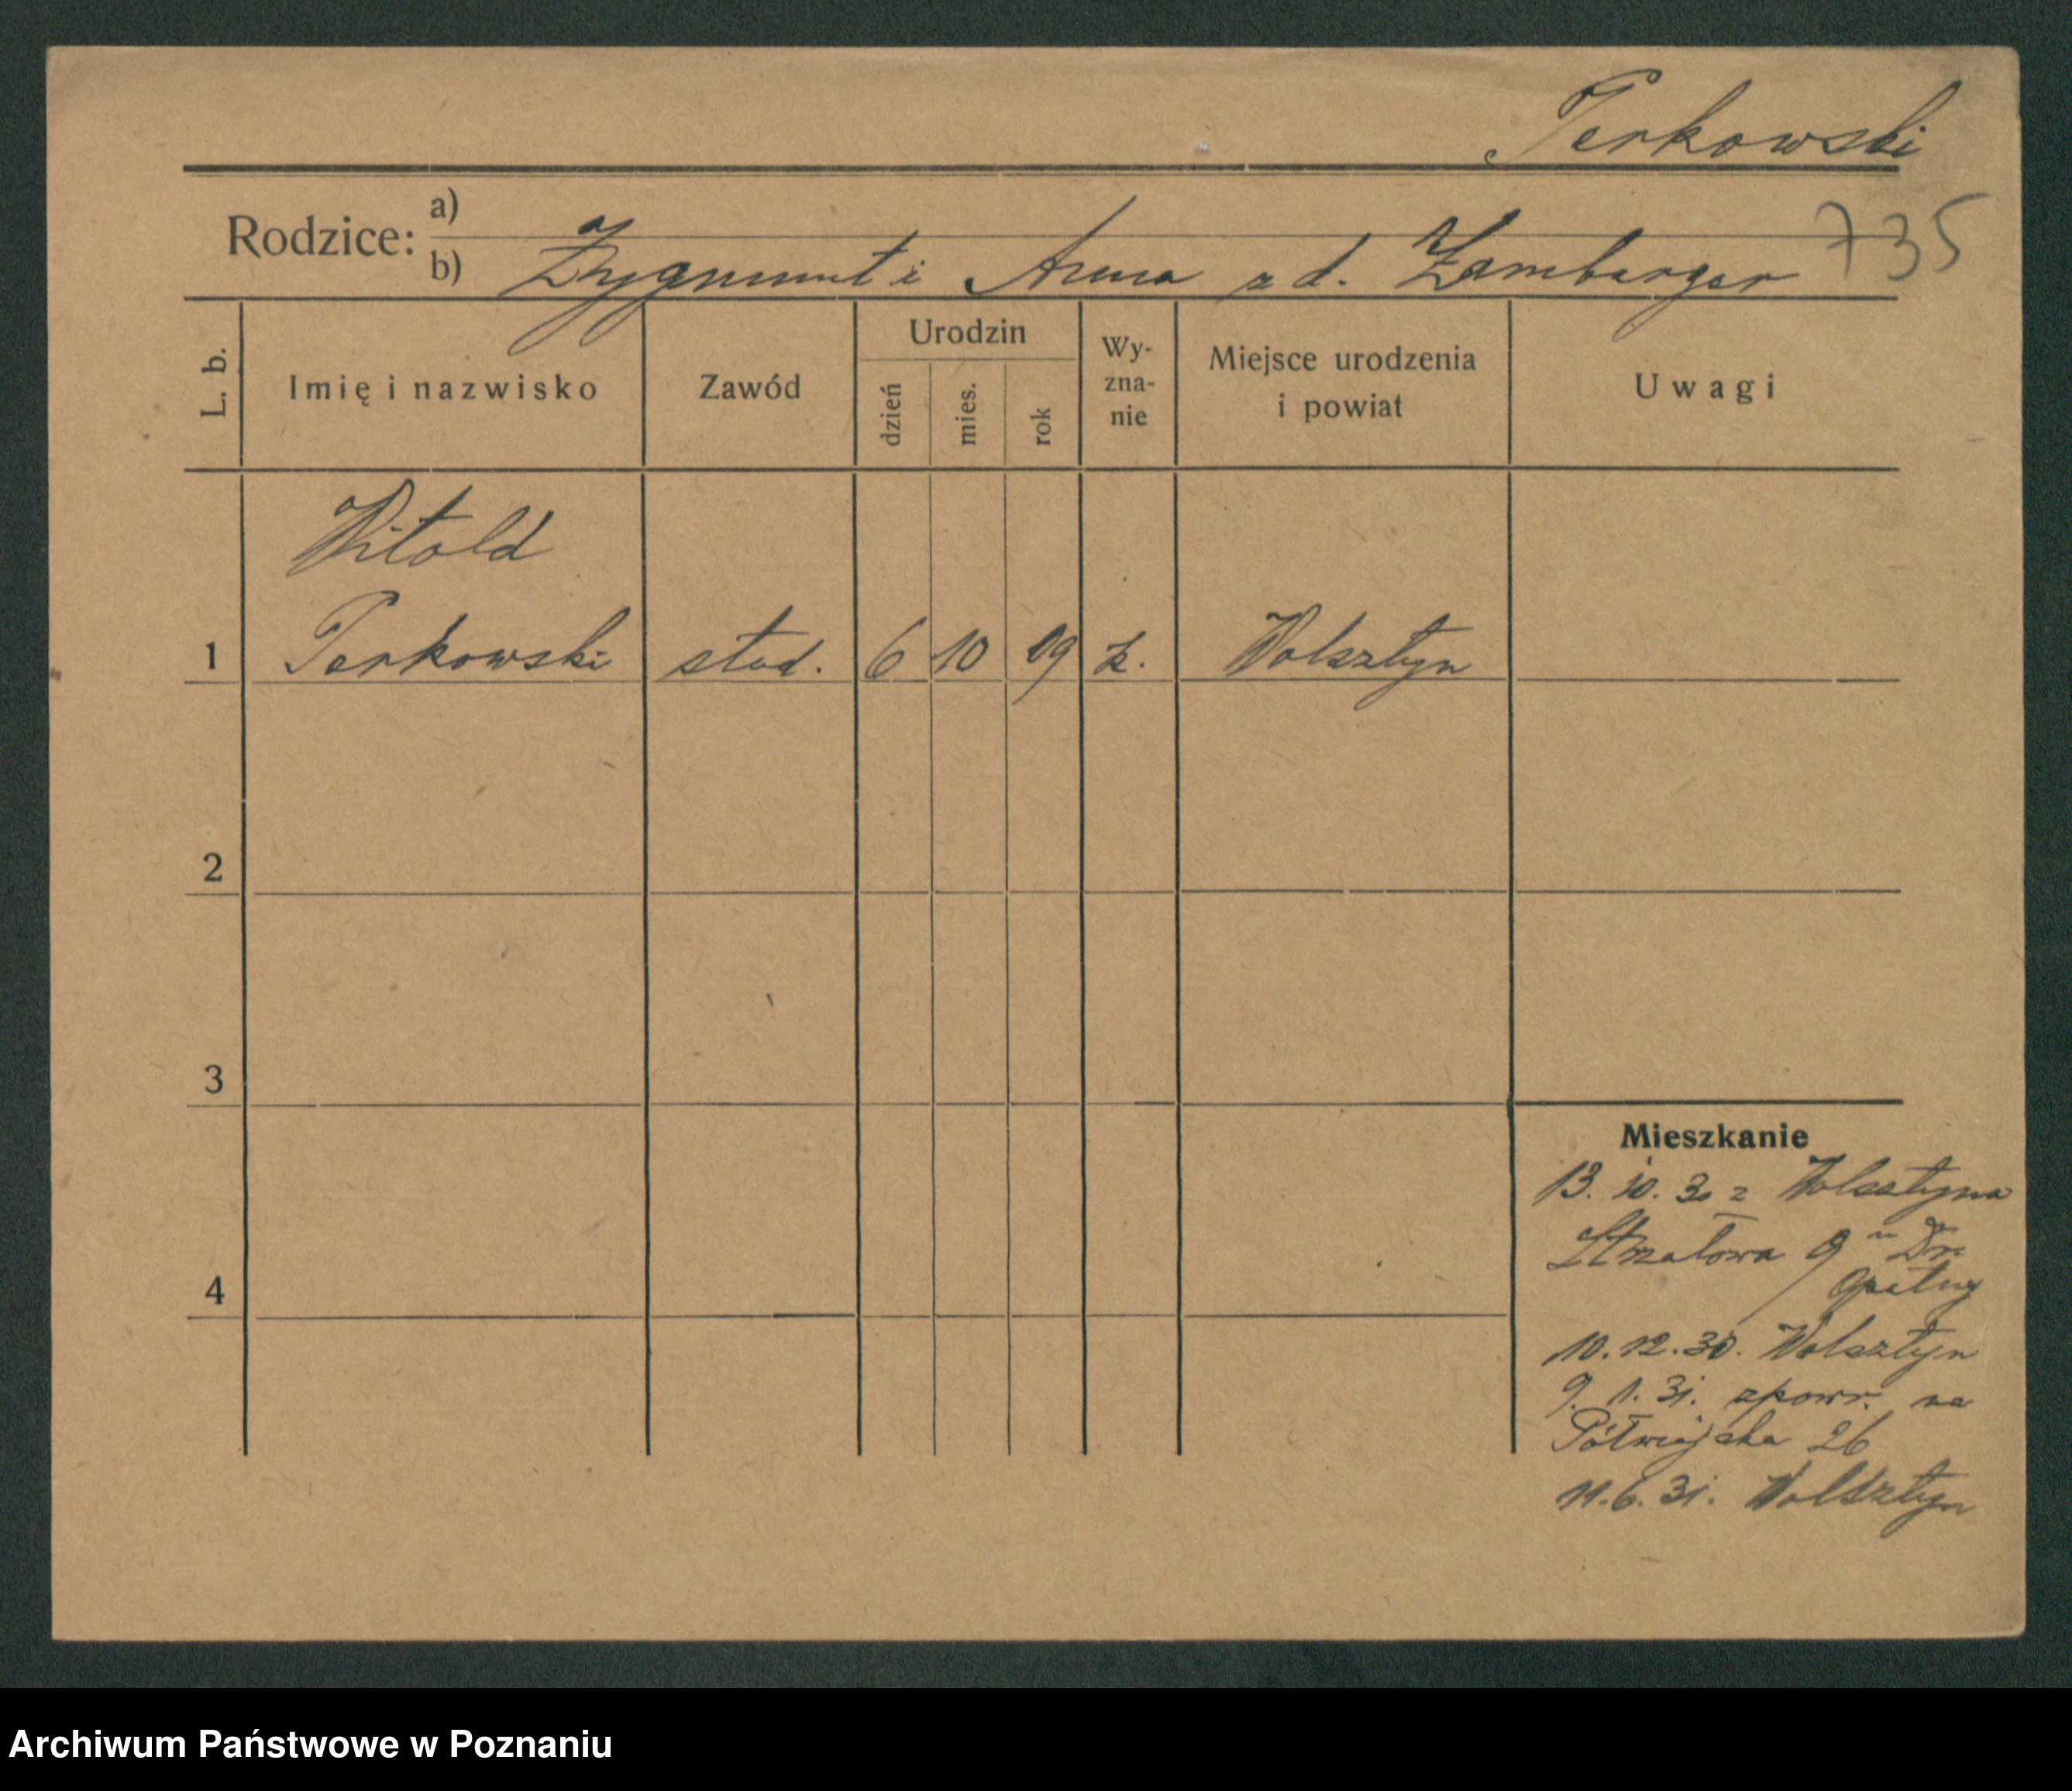 Perkowski
Rodzice:
a)
b) Zygmunt i Anna z d. Lamberger
735
L. b.
Imię i nazwisko
Zawód
Urodzin
dzień
mies.
rok
Wy-
zna-
nie
Miejsce urodzenia
i powiat
Uwagi
Witold
1 Perkowski stud. 6 10 09 k. Wolsztyn
2
3
4
Mieszkanie
13. 10. 30 z Wolsztyna
Strzałowa 9 u Dr.
10.12.30. Wolsztyn
9. 1. 31. zpowr. na
Półwiejska 26
11.6.31. Wolsztyn
Archiwum Państwowe w Poznaniu